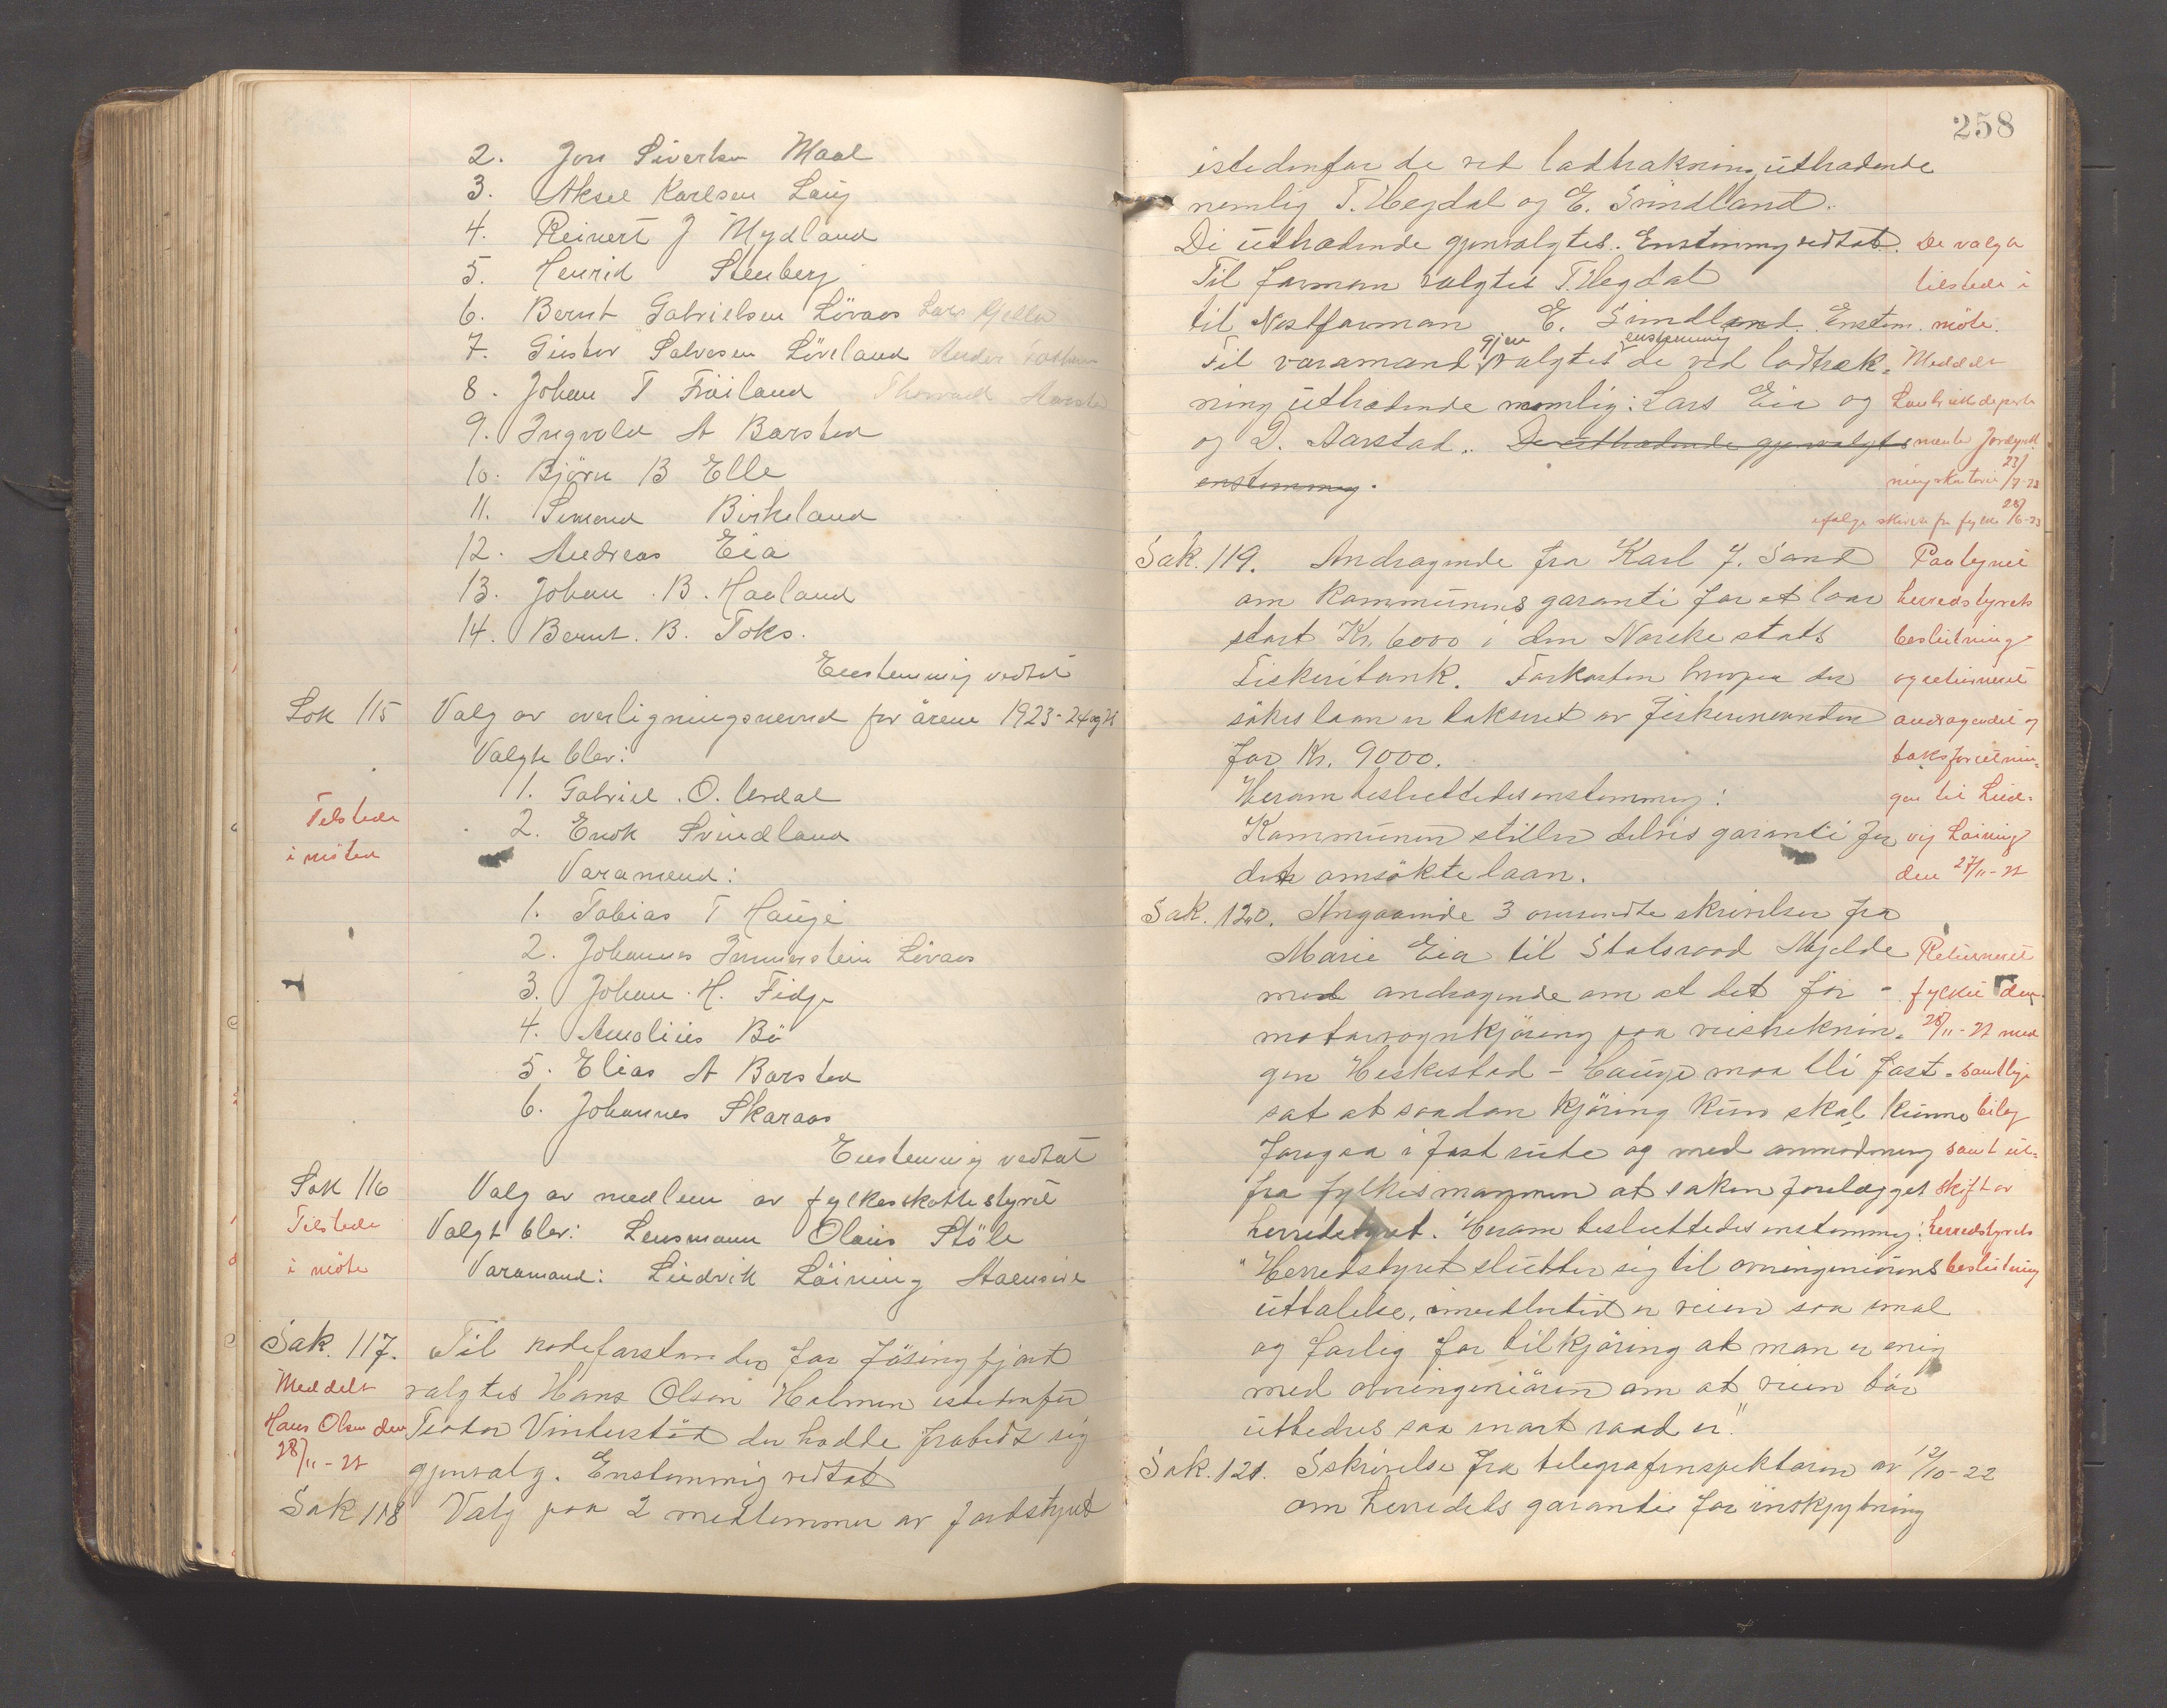 2. Jon Sivertsen Maal
3. Aksel Karlsen Laug
4. Reinert J Mydland
5. Henrik Stenberg
6. Bernt Gabrielsen Lövaas Lars Gjelle
7. Gustav Salvesen Löveland
8. Johan T Fröiland
9. Ingvald A Barstad
10. Björn B Elle
11. Simond Birkeland
12. Andreas Eia
13. Johan B. Haaland
14. Bernt. B. Toks.
Enstemmig vedtat
Sak 115 Valg av overligningsnevnd for årene 1923-24 og 25
Valgte blev:
1. Gabriel O. Urdal
Tilstede
2. Enok Svindland
i möted
Varamend:
1. Tobias T Hauge
2. Johannes Immerstein Lövaas
3. Johan H. Fidje
4. Amalius Bö
5. Elias A Barstad
6. Johannes Skaraas
Enstemmig vedtat
Sak 116 Valg av medlem av fylkesskattestyret
Tilstede
Valgt blev: Lensmann Olaus Stöle
i möte
Varamand: Ludvik Löining Aaensire
Sak. 117. Til rodeforstander for Jösingfjord
Meddelt
valgtes Hans Olsen Holmen istedenfor
Hans Olsen den
Teodor Vinterstö der hadde frabedt sig
28/11-22
gjenvalg. Enstemmig vedtat
Sak 118 Valg paa 2 medlemmer av jordstyret
258
istedenfor de ved lodtrækning uttrædende
nemlig T. Hegdal og E. Svindland.
De uttrædende gjenvalgtes. Enstemmig vedtat. De valgte
Til formann valgtes T. Hegdal tilstede i
til Nestformann E. Svindland. Enstem. möte.
gjen enstemmig
Til varamænd valgtes de ved lodtræk- Meddelt
ning uttrædende nemlig: Lars Eia og Lanbruksdeparte
og D. Aarstad. De uttrædende gjenvalgtes mente Jorddyrk
enstemmig.
ningskontoret 23/7-23
ifölge skriv fra fylke 28/6-23
Sak. 119. Andragende fra Karl J. Sand Paategnet
om kommunens garanti for et laan herredstyrets
stort Kr. 6000 i den Norske stats beslutning
Fiskeribank. Farkosten hvorpaa der og returneret
sökes laan er takseret av fiskerinevnden andragendet og
for Kr. 9000. taksforretnin-
Herom besluttedes enstemmig: gen til Lud-
Kommunen stiller delvis garanti for vig Löining
det omsökte laan. den 27/11-22
Sak. 120. Angaaende 3 oversendte skrivelser fra
Marie Eia til Statsraad Mjelde Returneret
med andragende om at det for - fylket den
motorvognkjöring paa veistreknin- 28/11-22 med
gen Heskestad - Hauge maa bli fast- samtlige
sat at saadan kjöring kun skal kunne bilag
foregaa i fast rute og med anmodning samt ut-
fra fylkesmannen at saken forelægges skrift av
herredstyret. Herom besluttedes enstemmig: herredstyrets
"Herredstyret slutter sig til overingeniörens beslutning
uttalelse, imidlertid er veien saa smal
og farlig for bilkjöring at man er enig
med overingeniören om at veien bör
utbedres saa snart raad er."
Sak. 121. Sskrivelse fra telegrafinspektören av 12/10-22
om herredets garanti for inskjytning